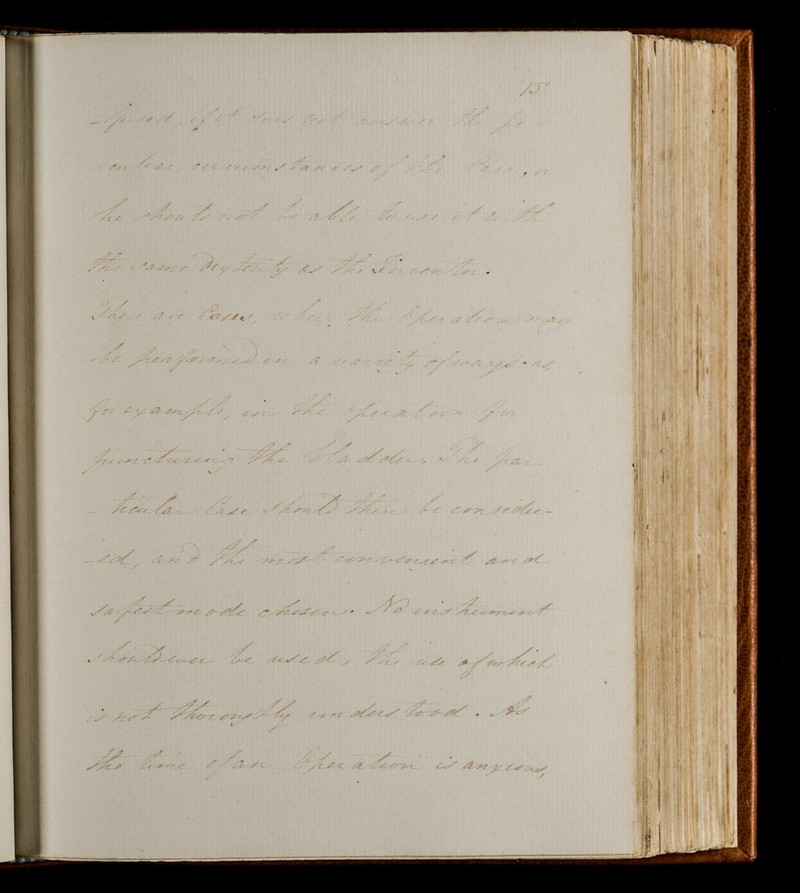 15
-posed, if it does not answer the pe-
-culiar circumstances of the Case, or
he should not be able to use it with
the same Dexterity as the Inventor.
There are Cases, where the Operation may
be performed in a variety of ways as,
for example, in the operation for
puncturing the bladder. The par-
-ticular Case should then be consider-
-ed, and the most convenient and
safest mode chosen. No instrument
should ever be used, the use of which
is not thoroughly understood. As
the time of an Operation is anxious,